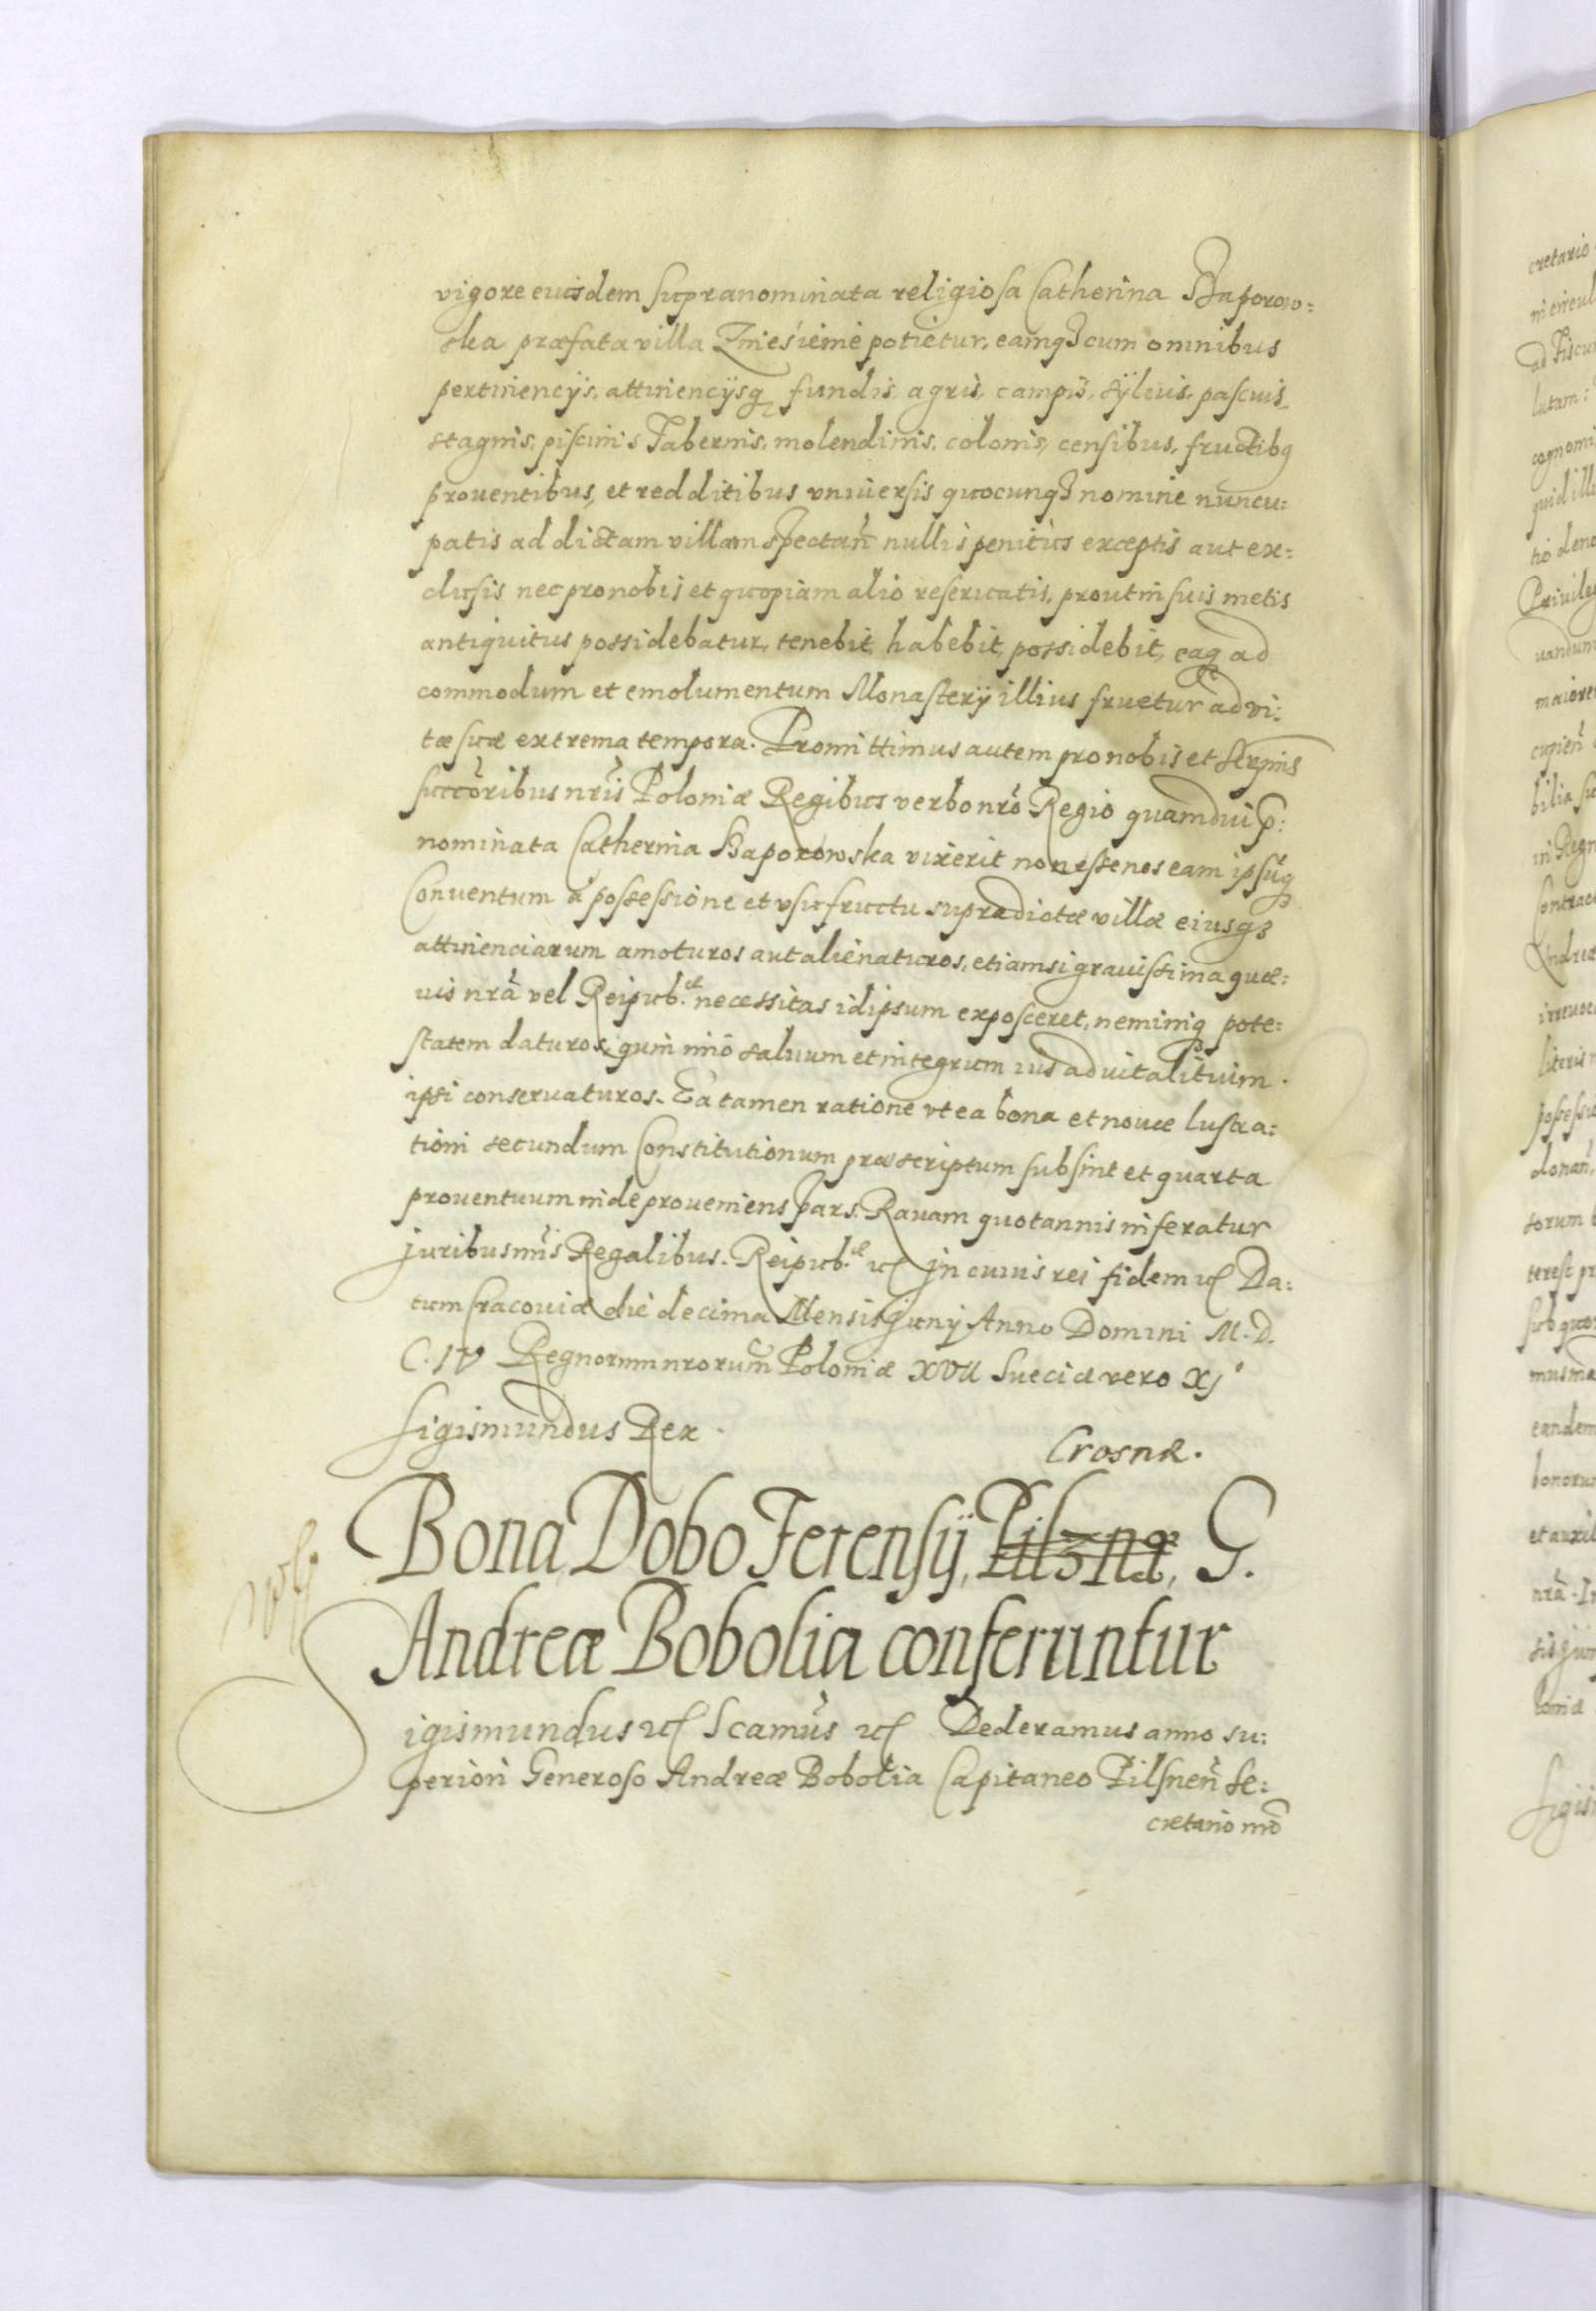 vigore eiusdem supranominata religiosa Catherina Baporow=
ska præfata villa Zmiesienie potietur, eamq3 cum omnibus
pertinencijs, attinencijsq fundis, agris, campis, syluis, pascuis,
stagnis, piscinis Tabernis, molendinis, colonis, censibus, fructibq
prouentibus, et redditibus vniuersis quocunq3 nomine nuncu=
patis ad dictam villam spectañ nullis penitus exceptis aut ex=
clusis nec pro nobis et quopiam alio reseruatis, prout in suis metis
antiquitus possidebatur, tenebit, habebit, possidebit, eaq ad
commodum et emolumentum Monasterij illius fruetur ad vi=
tæ suæ extrema tempora. Promittimus autem pro nobis et Serenis
succōribus nr̃is Poloniæ Regibus verbo nr̃o Regio quamdui p̱=
nominata Catherina Baporowska vixerit non esse nos eam ipsūq3
Conuentum à possessione et vsufructu supradictæ villæ eiusq3
attinenciarum amoturos aut alienaturos, etiamsi grauissima quæ=
uis nr̃a vel Reipub.æ necessitas id ipsum exposceret, neminiq3 pote=
statem daturos, quin imō saluum et integrum ius aduitalitium
ipsi conseruaturos. Ea tamen ratione vt ea bona et nouæ lustra=
tioni secundum Constitutionum præscriptum subsint et quarta
prouentuum inde proueniens pars Rauam quotannis inferatur
juribus nr̃is Regalibus. Reipub.æ etc In cuius rei fidem etc Da=
tum Cracouiæ die decima Mensis Junij Anno Domini M.D.
C.IV Regnorum nrorum Poloniæ XVII Sueciæ vero XI
Sigismundus Rex
Crosnæ.
Bona Dobo Ferensij, Pilznæ, G.
Andreæ Bobolia conferuntur
Sigismundus etc Scamũs etc Dederamus anno su=
periori Generoso Andreæ Bobolia Capitaneo Pilsneñ Se=
cretario nr̃o